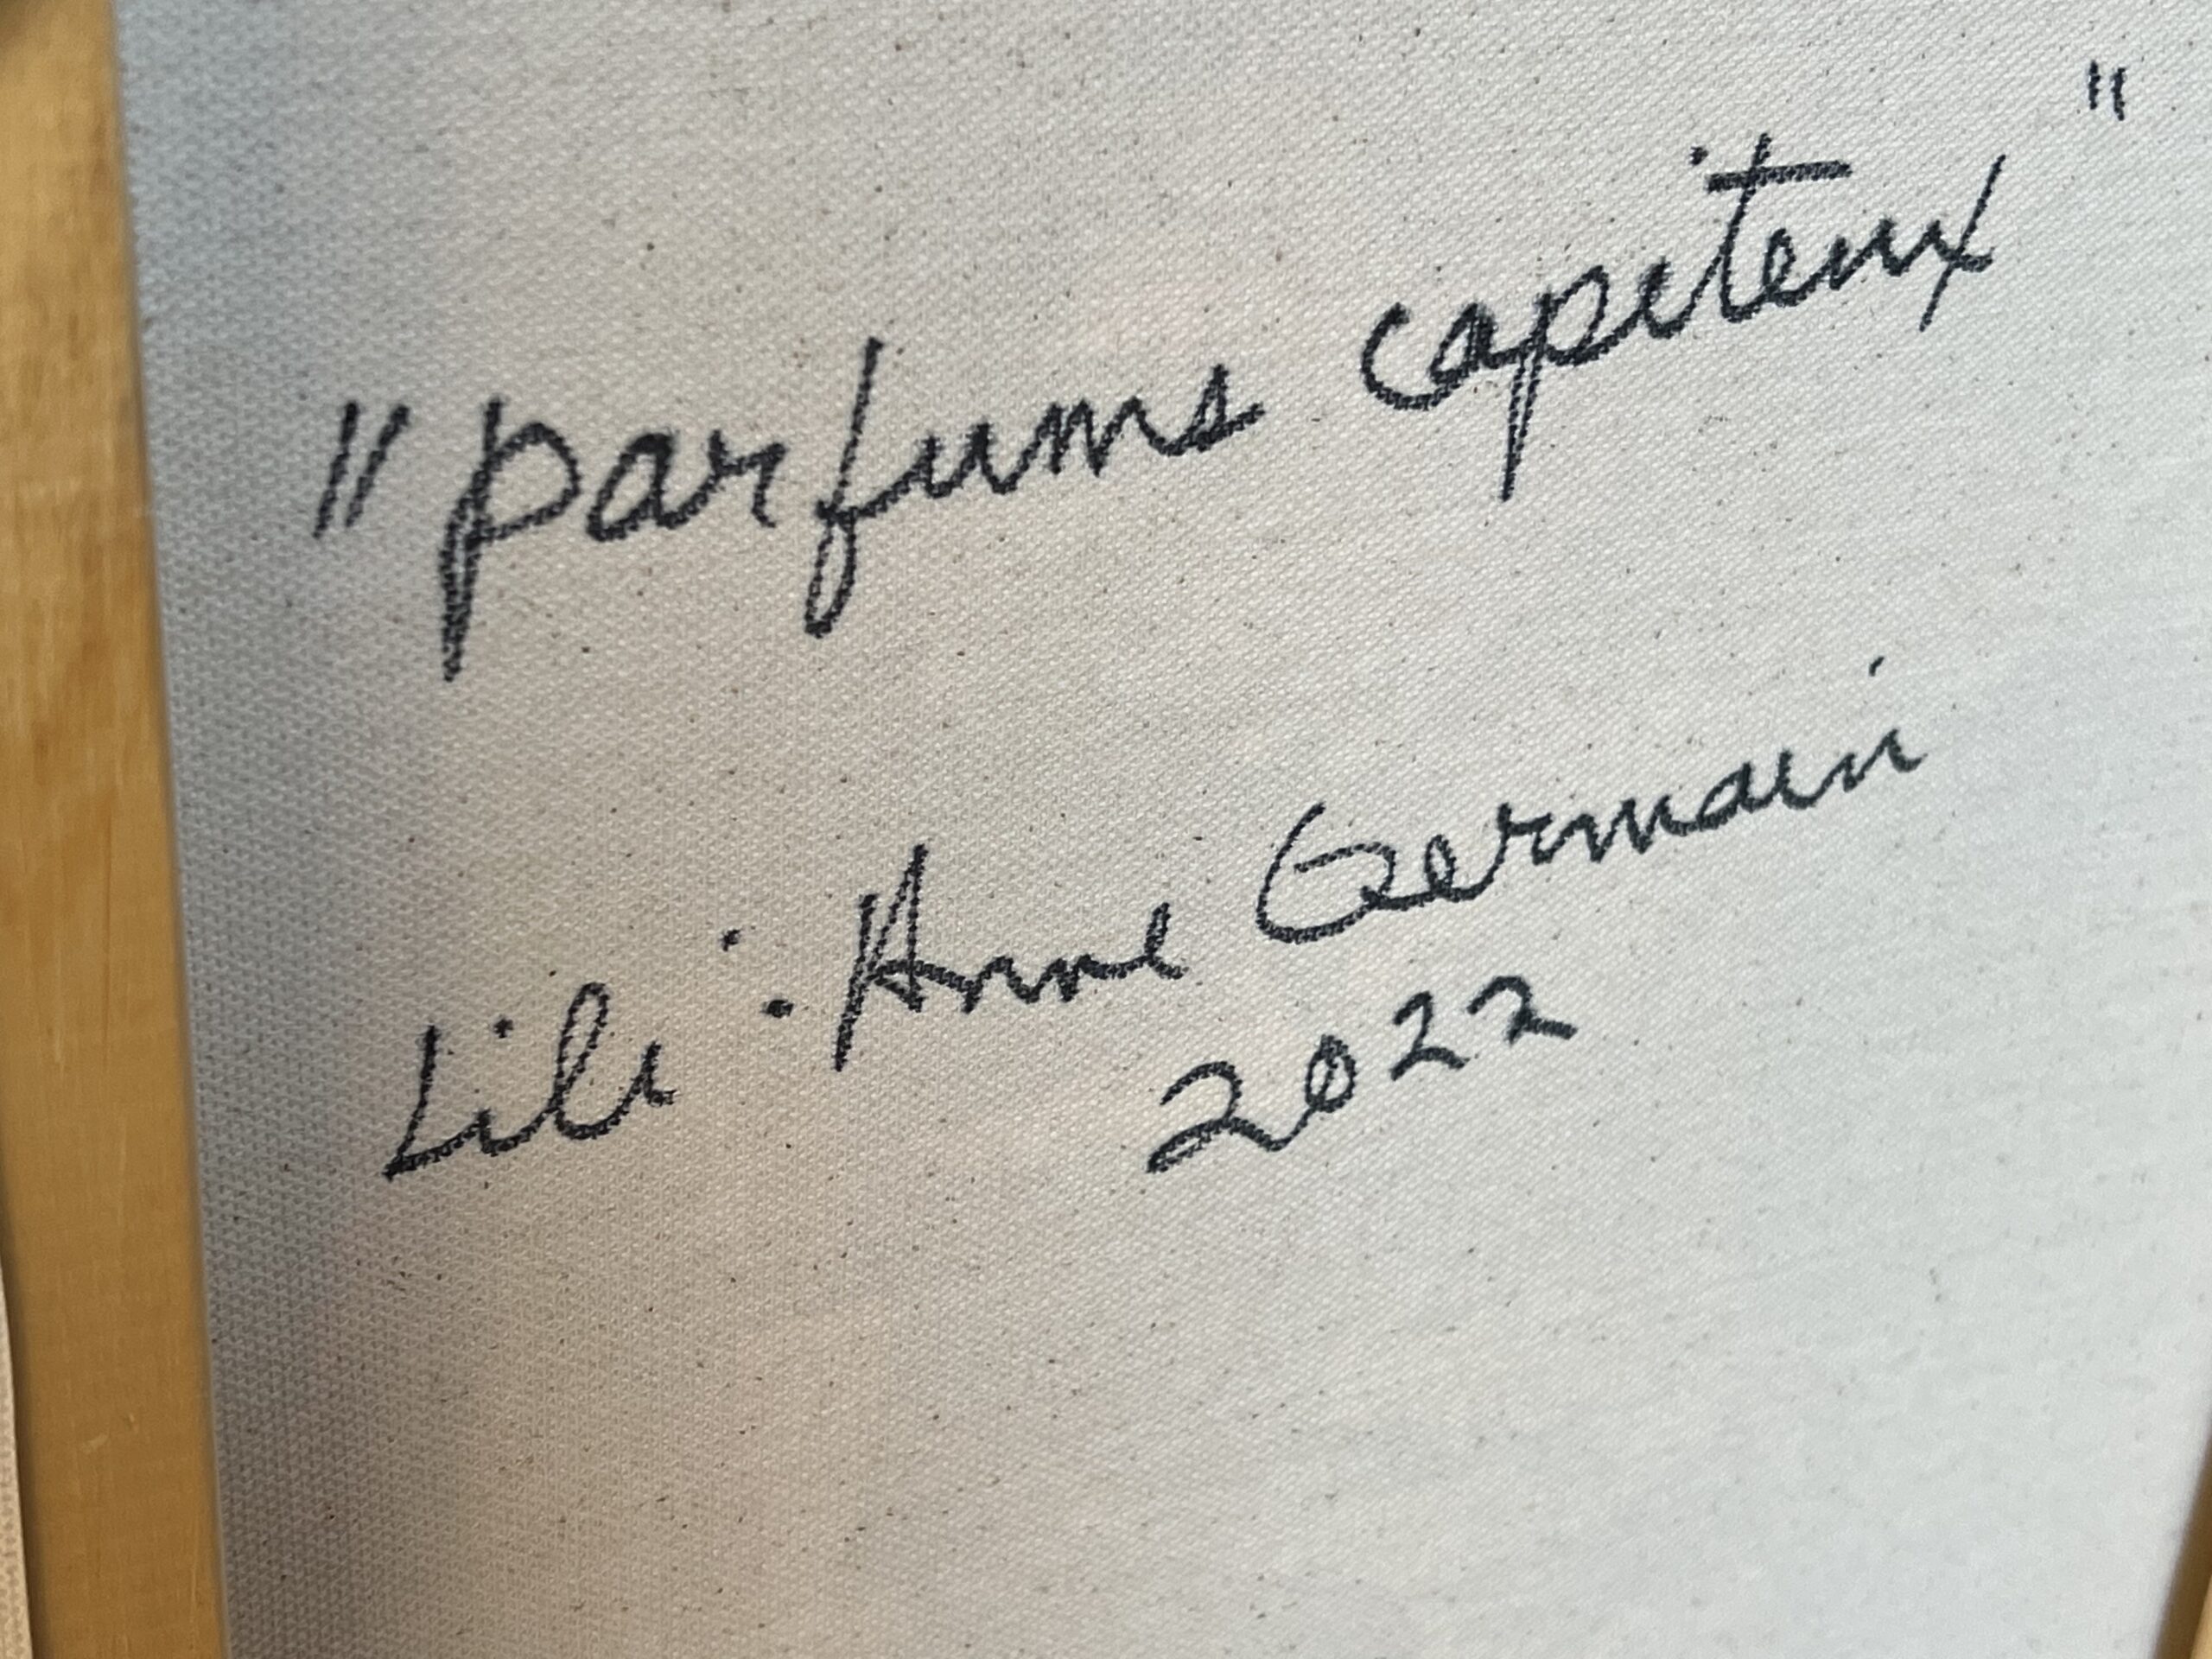 "parfums capiteux"
Lili-Anne Germain
2022